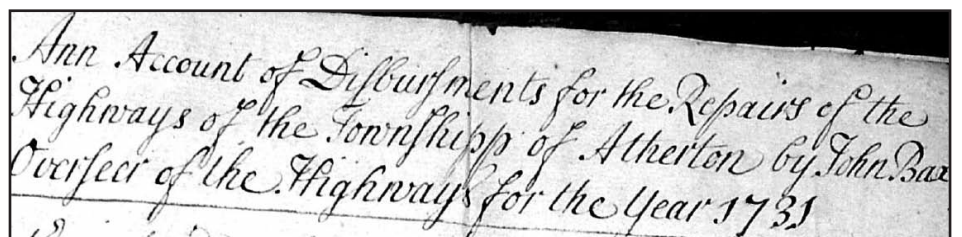 Ann Account of Disbursments for the Repairs of the
Highways of the Townshipp of Atherton by John Bax
Overseer of the Highways for the Year 1731